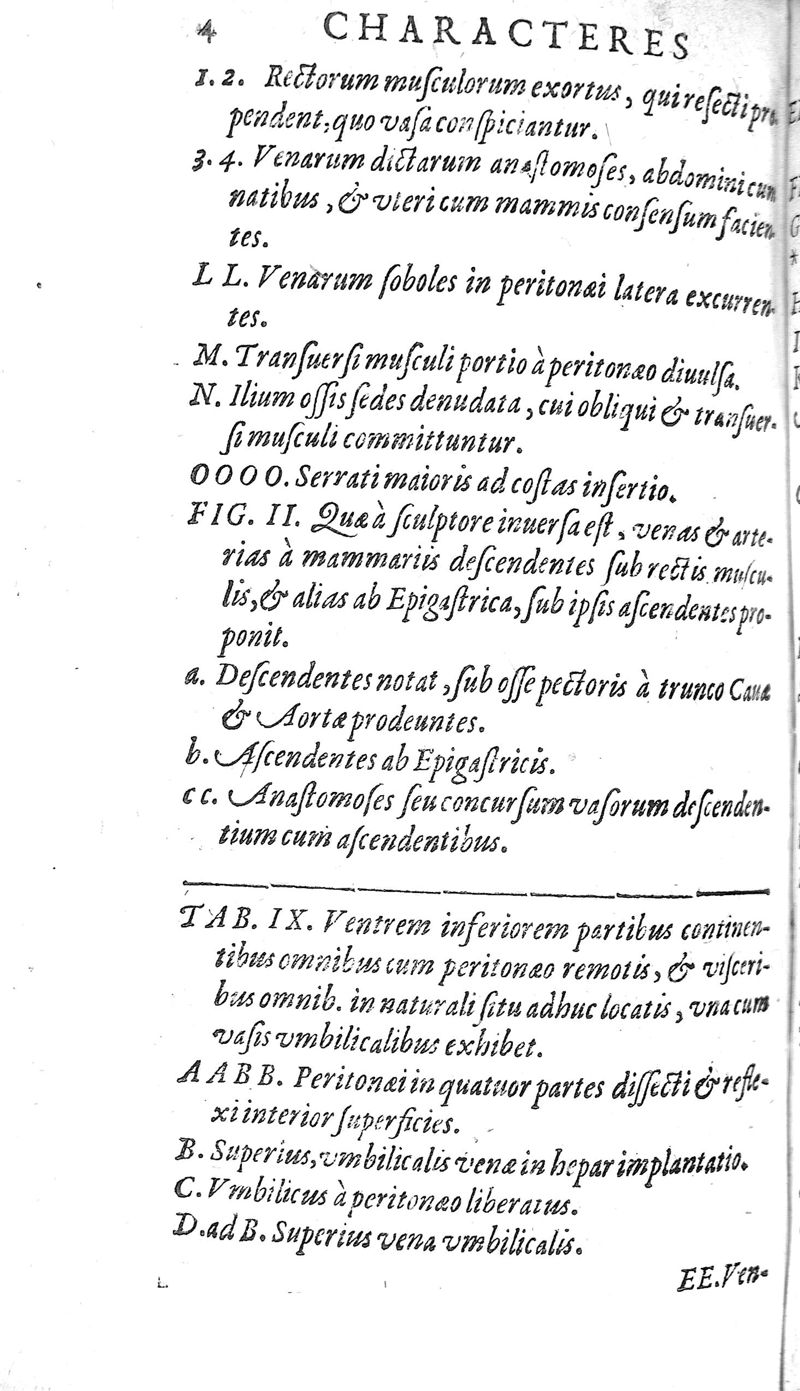 4 CHARACTERES
1. 2. Rectorum musculorum exortus, qui resecti pro-
pendent, quo vasa conspiciantur.
3. 4. Venarum dictarum anastomoses, abdomini cum
natibus, & vteri cum mammis consensum facien-
tes.
L L. Venarum soboles in peritonæi latera excurren-
tes.
M. Transuersi musculi portio à peritonæo diuulsa.
N. Ilium ossis sedes denudata, cui obliqui & transuer-
si musculi committuntur.
O O O O. Serrati maioris ad costas insertio.
FIG. II. Quæ à sculptore inuersa est, venas & arte-
rias à mammariis descendentes sub rectis muscu-
lis, & alias ab Epigastrica, sub ipsis ascendentes pro-
ponit.
a. Descendentes notat, sub osse pectoris à trunco Cauæ
& Aortæ prodeuntes.
b. Ascendentes ab Epigastricis.
c c. Anastomoses seu concursum vasorum descenden-
tium cum ascendentibus.
TAB. IX. Ventrem inferiorem partibus continen-
tibus omnibus cum peritonæo remotis, & visceri-
bus omnib. in naturali situ adhuc locatis, vna cum
vasis vmbilicalibus exhibet.
A A B B. Peritonæi in quatuor partes dissecti & refle-
xi interior superficies.
B. Superius, vmbilicalis venæ in hepar implantatio.
C. Vmbilicus à peritonæo liberatus.
D. ad B. Superius vena vmbilicalis.
EE. Ven-